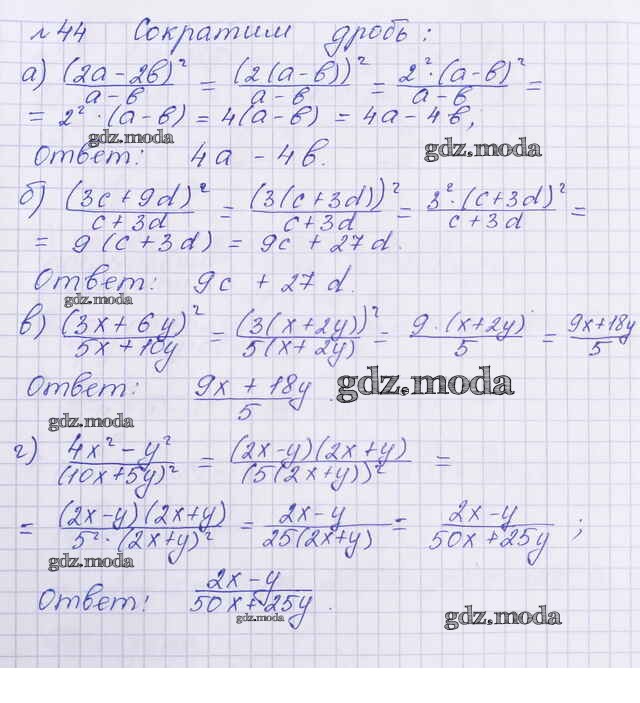 №44 Сократим дробь:
а) (2a-2b)²/(a-b) = (2(a-b))²/(a-b) = 2²·(a-b)²/(a-b) =
= 2²·(a-b) = 4(a-b) = 4a-4b;
gdz.moda
Ответ: 4a - 4b.
gdz.moda
б) (3c+9d)²/(c+3d) = (3(c+3d))²/(c+3d) = 3²·(c+3d)²/(c+3d) =
= 9(c+3d) = 9c + 27d.
Ответ: 9c + 27d.
gdz.moda
в) (3x+6y)²/(5x+10y) = (3(x+2y))²/(5(x+2y)) = 9·(x+2y)/5 = (9x+18y)/5
Ответ: (9x+18y)/5.
gdz.moda
gdz.moda
г) (4x²-y²)/(10x+5y)² = (2x-y)(2x+y)/(5(2x+y))² =
= (2x-y)(2x+y)/(5²·(2x+y)²) = (2x-y)/(25(2x+y)) = (2x-y)/(50x+25y);
gdz.moda
Ответ: (2x-y)/(50x+25y).
gdz.moda
gdz.moda